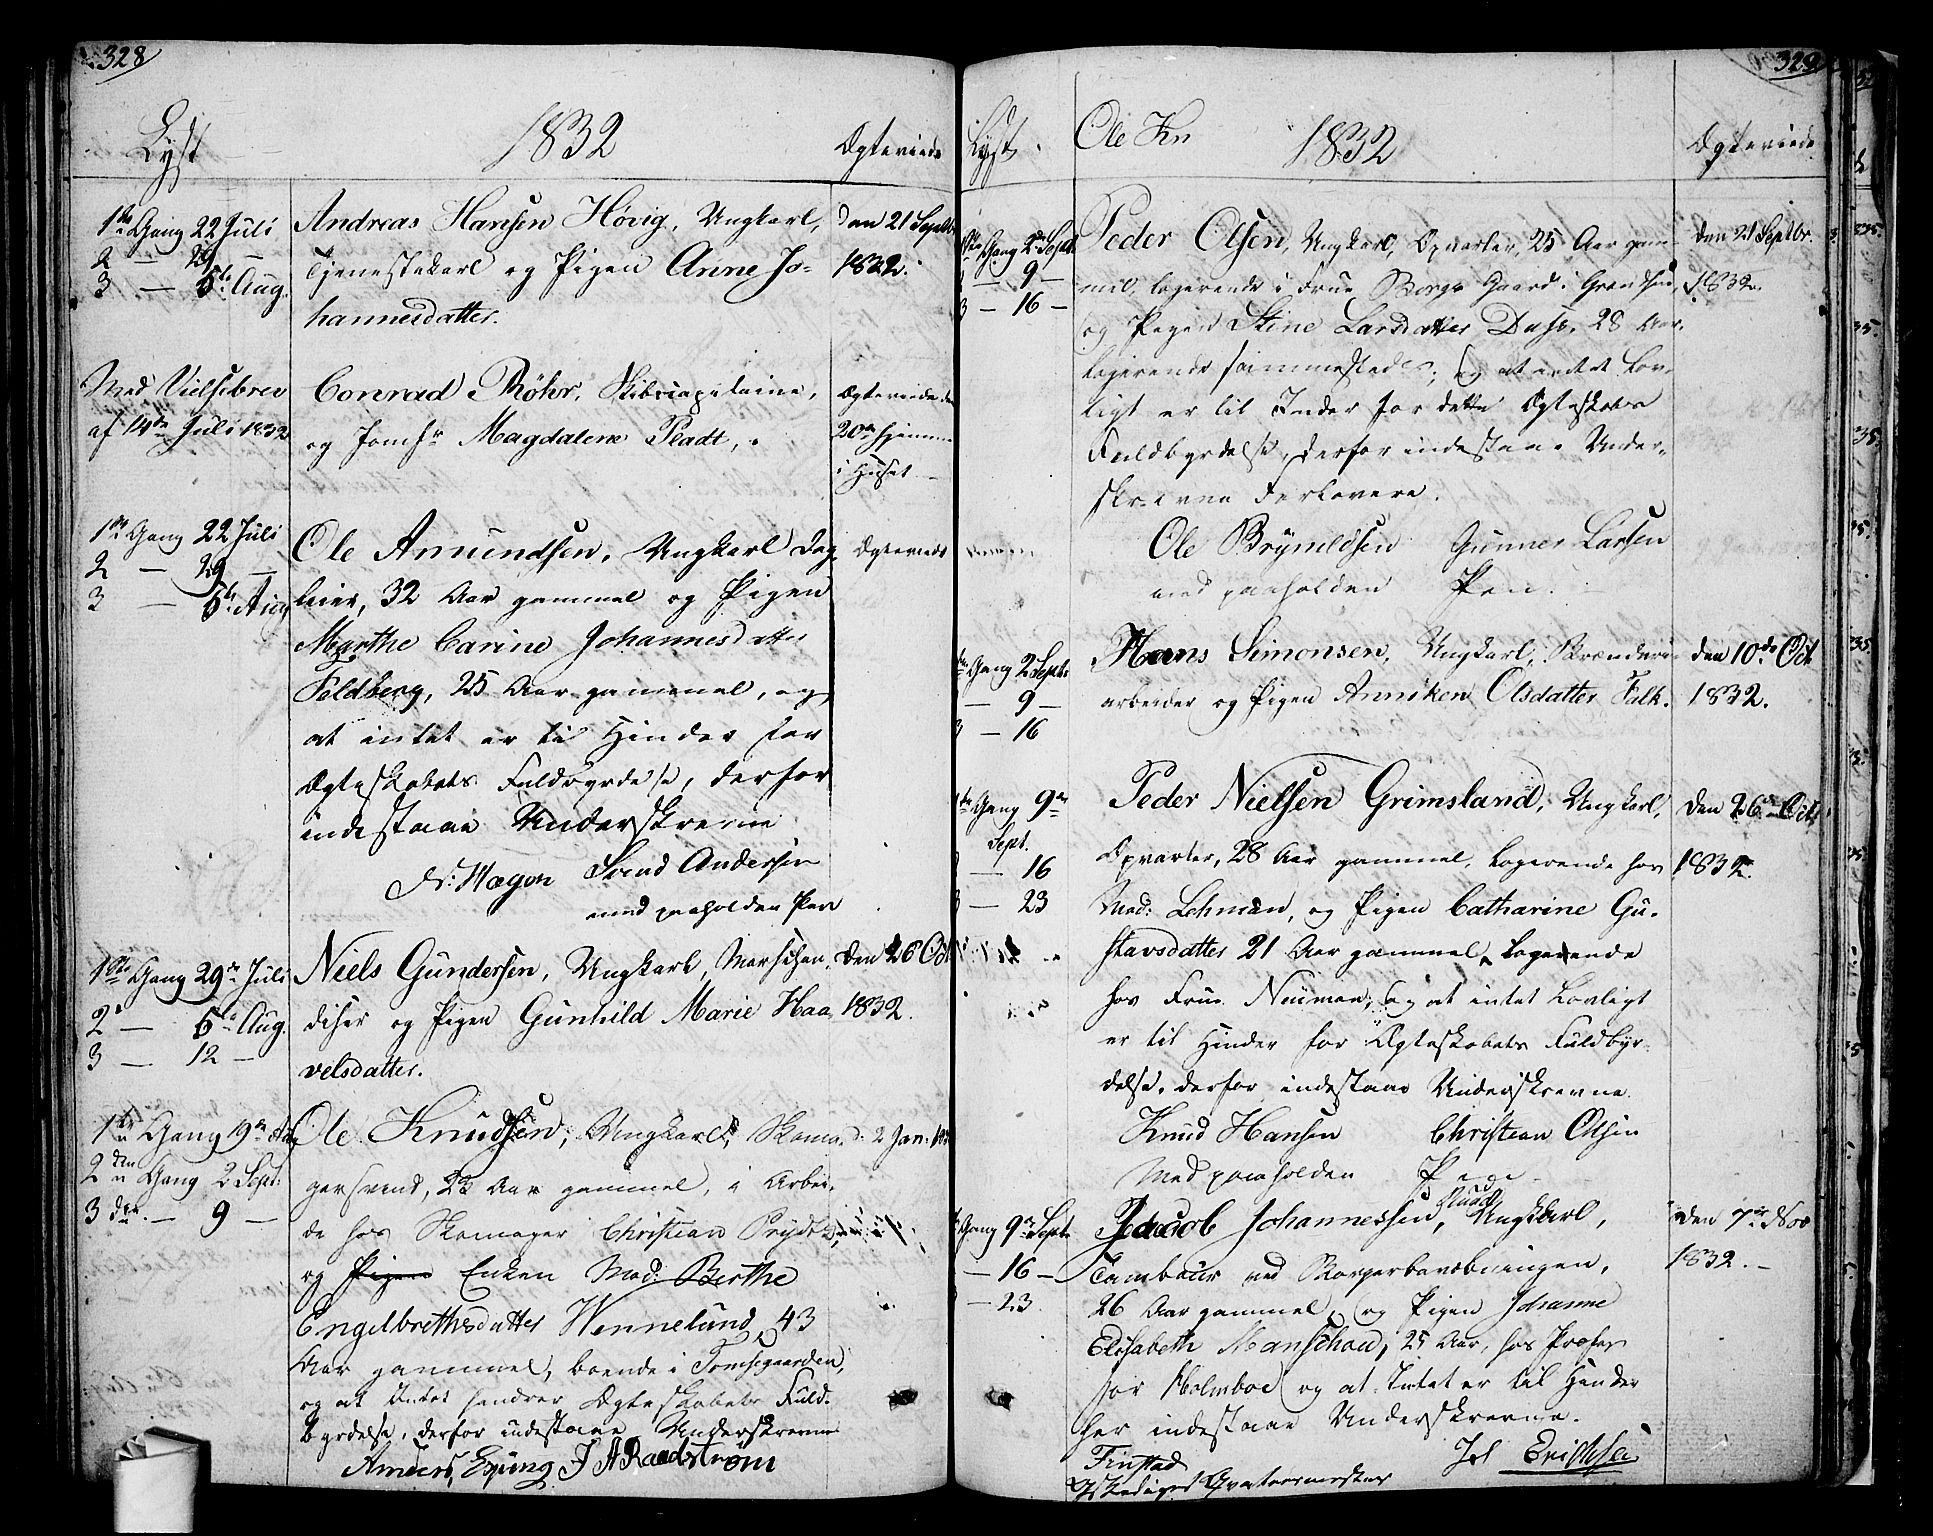 328
Lyst 1832 Ægteviede
1ste Gang 22 Juli
2 — 29 —
3 — 5te Aug.
Andreas Hansen Høvig, Ungkarl,
Tjenestekarl og Pigen Anne Jo-
hannesdatter.
den 21 Septbr
1832.
Med Vielsebrev
af 14de Juli 1832
Conrad Röhr, Skibscapitaine,
og Jomfr Magdalene Pladt,
Ægteviede den
20de hjemme
i Huset
1ste Gang 22 Juli
2 — 29 —
3 — 5te Aug
Ole Amundsen, Ungkarl Dag
leier, 32 Aar gammel og Pigen
Marthe Carine Johannesdatter
Feldberg, 25 Aar gammel, og
at intet er til Hinder for
Ægteskabets Fuldbyrdelse, derfor
indestaae Underskrevne
N: Wagon Svend Andersen
med paaholden Pen
Ægteviede
1ste Gang 29de Juli
2 — 5te Aug.
3 — 12 —
Niels Gundersen, Ungkarl, Marschan-
diser og Pigen Gunhild Marie Haa-
velsdatter.
den 26 Oct
1832.
1ste Gang 19de Aug
2den Gang 2 Sept:
3die — 9 —
Ole Knudsen, Ungkarl, Skoma-
gersvend, 23 Aar gammel, i Arbei-
de hos Skomager Christian Prydtz,
og Pigen Enken Mad: Berthe
Engelbrethsdatter Wennelund, 43
Aar gammel, boende i Tomtegaarden,
og at Intet hindrer Ægteskabets Fuld-
byrdelse, derfor indestaae Underskrevne
Anders Esping J A Raadstrøm
d. 2 Jan.
329
Lyst Ole Kn 1832 Ægteviede
1ste Gang 2den Sept
2 — 9 —
3 — 16 —
Peder Olsen, Ungkarl, Opvarter, 25 Aar gam-
mel, logerende i Frue Borgs Gaard i Grændsen,
og Pigen Stine Larsdatter Dass, 28 Aar,
logerende sammesteds; og at intet Lov-
ligt er til Hinder for dette Ægteskabs
Fuldbyrdelse, derfor indestaae Under-
skrevne Forlovere.
Ole Brynildsen Gunner Larsen
med paaholden Pen.
den 21 Septbr.
1832.
Gang 2 Sept:
— 9 —
3 — 16
Hans Simonsen, Ungkarl, Brænderi-
arbeider og Pigen Anniken Olsdatter Falk.
den 10de Oct
1832.
1ste Gang 9de
Sept.
— 16
3 — 23
Peder Nielsen Grimsland, Ungkarl,
Opvarter, 28 Aar gammel, logerende hos
Mad: Lehman, og Pigen Catharine Gu-
stavsdatter 21 Aar gammel, logerende
hos Frue Neuman, og at intet Lovligt
er til Hinder for Ægteskabets Fuldbyr-
delse, derfor indestaae Underskrevne.
Knud Hansen Christian Olsen
Med paaholden Pen
den 26de Oct
1832.
Gang 9de Sept.
— 16 —
— 23.
Jacob Johannessen, Ungkarl,
Tambour ved Borgerbevæbningen,
26 Aar gammel, og Pigen Johanne
Elisabeth Manschou, 25 Aar, hos Profes-
sor Holmboe og at Intet er til Hinder
her indestaae Underskrevne.
Finstad Joh Erichsen
den 7de Nov
1832.